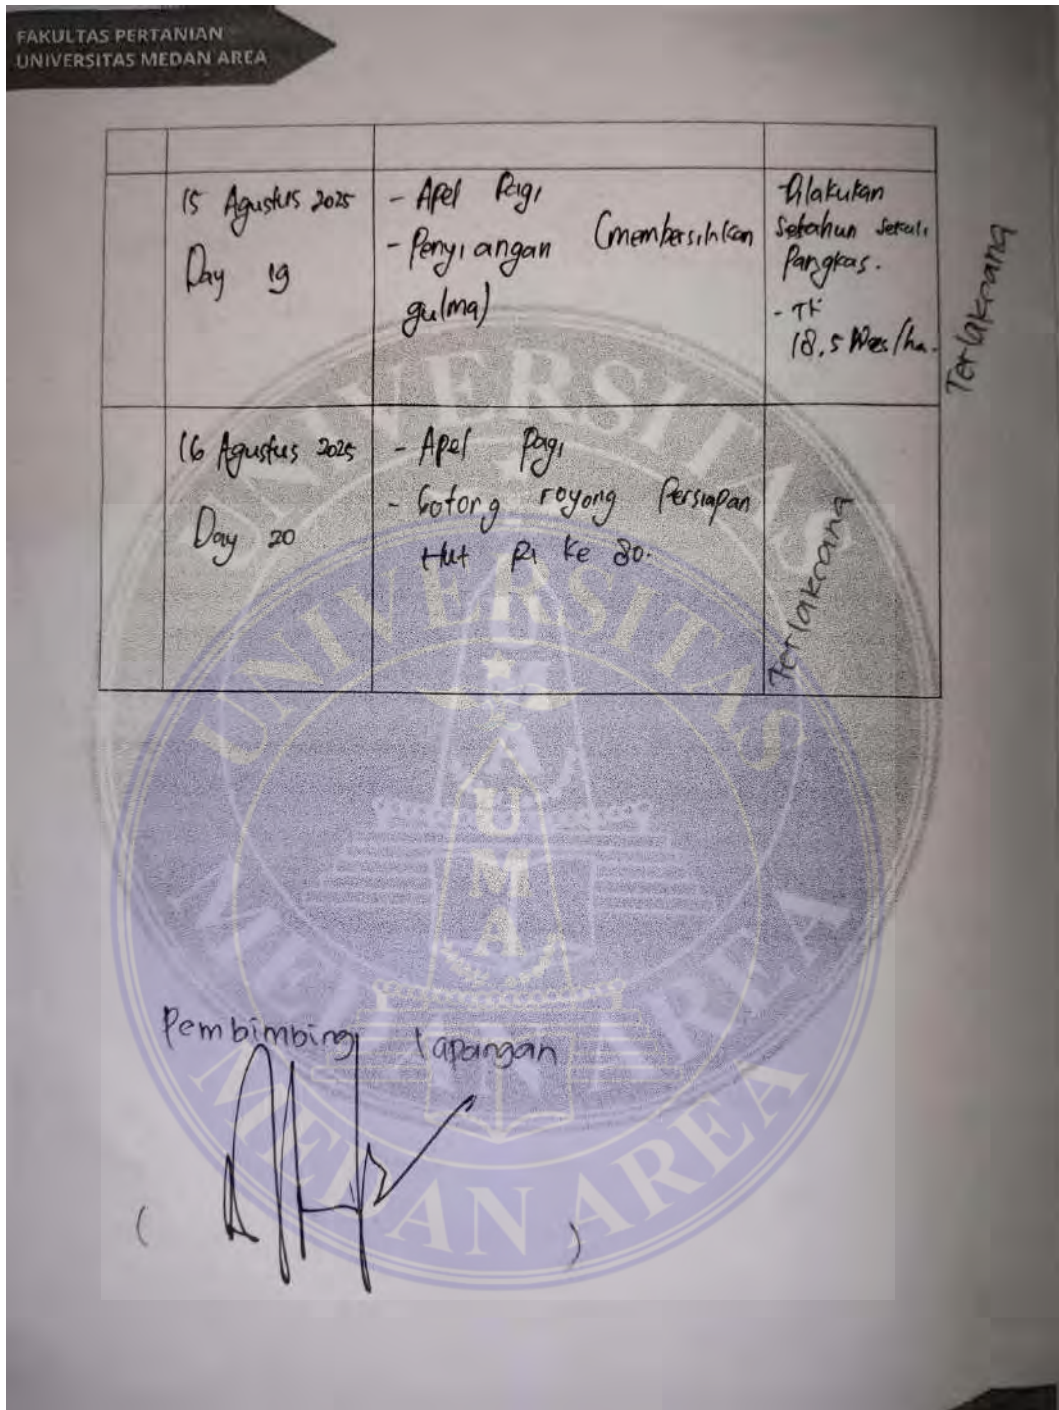 FAKULTAS PERTANIAN
UNIVERSITAS MEDAN AREA
15 Agustus 2025
Day 19
- Apel Pagi
- Penyiangan (membersihkan
gulma)
- Dilakukan
Setahun Sekali
Pangkas.
- TK
18,5 /ha.
Terlaksana
16 Agustus 2025
Day 20
- Apel Pagi
- Gotong royong Persiapan
Hut RI Ke 80.
Terlaksana
UNIVERSITAS
MEDAN AREA
UNIVERSITAS
MEDAN AREA
UMA
Pembimbing lapangan
( )